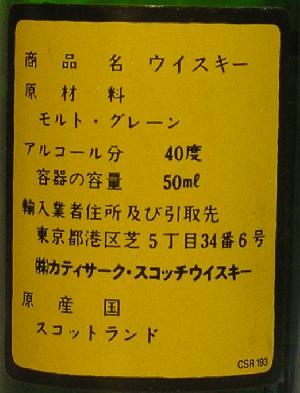 商品名 ウイスキー
原材料
モルト・グレーン
アルコール分 40度
容器の容量 50ml
輸入業者住所及び引取先
東京都港区芝5丁目34番6号
㈱カティサーク・スコッチウイスキー
原産国
スコットランド
CSR 193